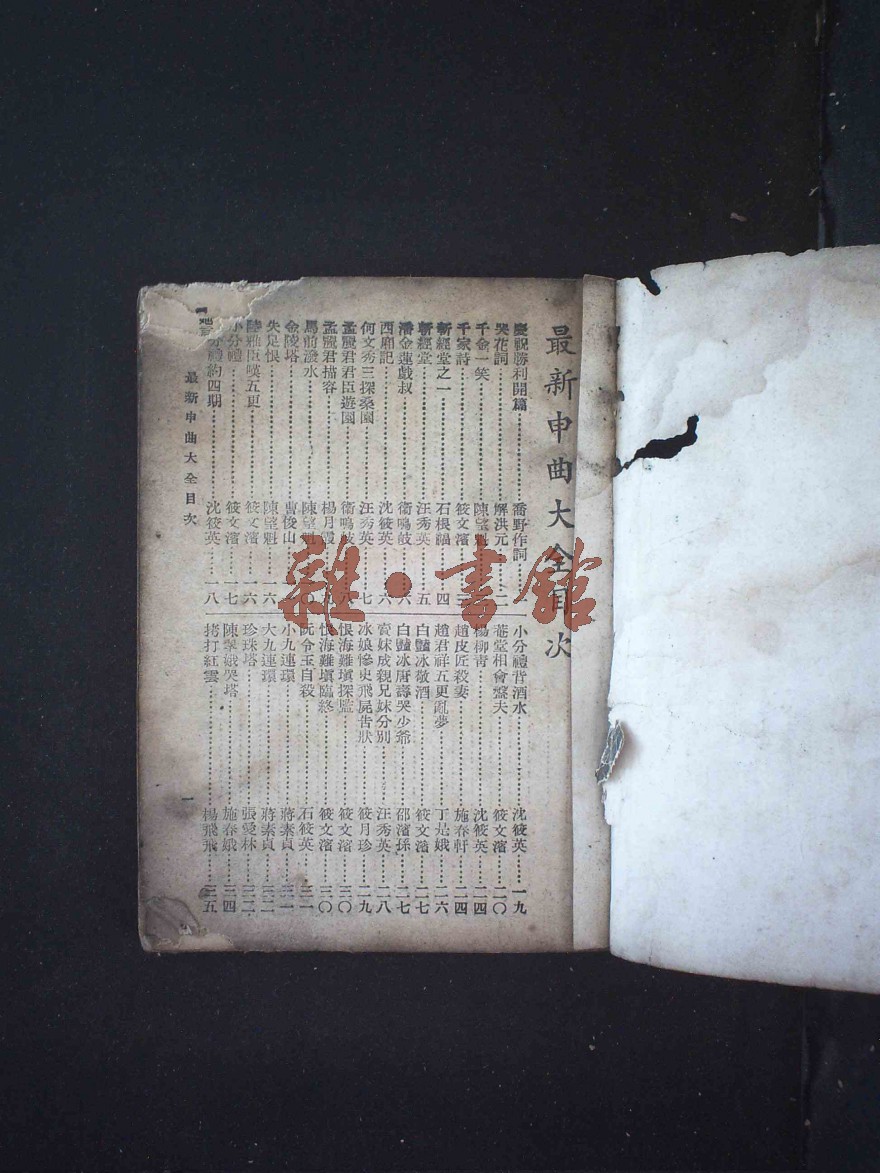 最新申曲大全目次
慶祝勝利開篇 喬野作詞 一
哭花詞 解洪元 二
千金一笑 陳望魁
千家詩 筱文濱
新經堂之一 石根福 四
新經堂 汪秀英 五
潘金蓮戲叔 衛鳴歧 六
西廂記 沈筱英 六
何文秀三探桑園 汪秀英 七
孟麗君君臣遊園 衛鳴歧 八
孟麗君描容 楊月霞
馬前潑水 陳望魁
金陵塔 曹俊山
失足恨 陳望魁 一六
陸雅臣嘆五更 筱文濱 一六
小分禮 筱文濱 一七
分禮約四期 沈筱英 一八
小分禮背酒水 沈筱英 一九
菴堂相會盤夫 筱文濱 二〇
楊柳青 沈筱英 二四
趙皮匠殺妻 施春軒 二四
趙君祥五更亂夢 丁是娥 二六
白豔冰敬酒 筱文濱 二七
白豔冰府壽哭少爺 邵濱孫 二七
賣妹成親兄妹分別 汪秀英 二八
冰娘慘史飛屍告狀 筱月珍 二九
恨海難塡探監 筱文濱 三〇
恨海難塡臨終 筱文濱 三〇
阮令玉自殺 石筱英 三一
小九連環 蔣素貞 三一
大九連環 蔣素貞 三二
珍珠塔 張愛林 三二
陳翠娥哭塔 施春娥 三四
拷打紅雲 楊飛飛 三五
最新申曲大全目次 一
雜·書館